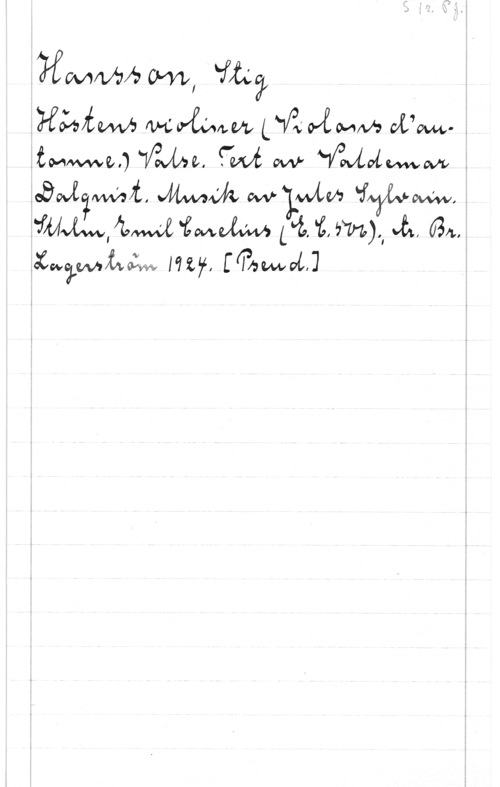 S 12. Pf.
Hansson, Stig
Höstens violiner (Violons d'au-
tomne.) Valse. Text av Valdemar
Dalquist. Musik av Jules Sylvain.
Sthlm, Emil Carelius (E. C. 506); tr. Br.
Lagerström 1924. [Pseud.]